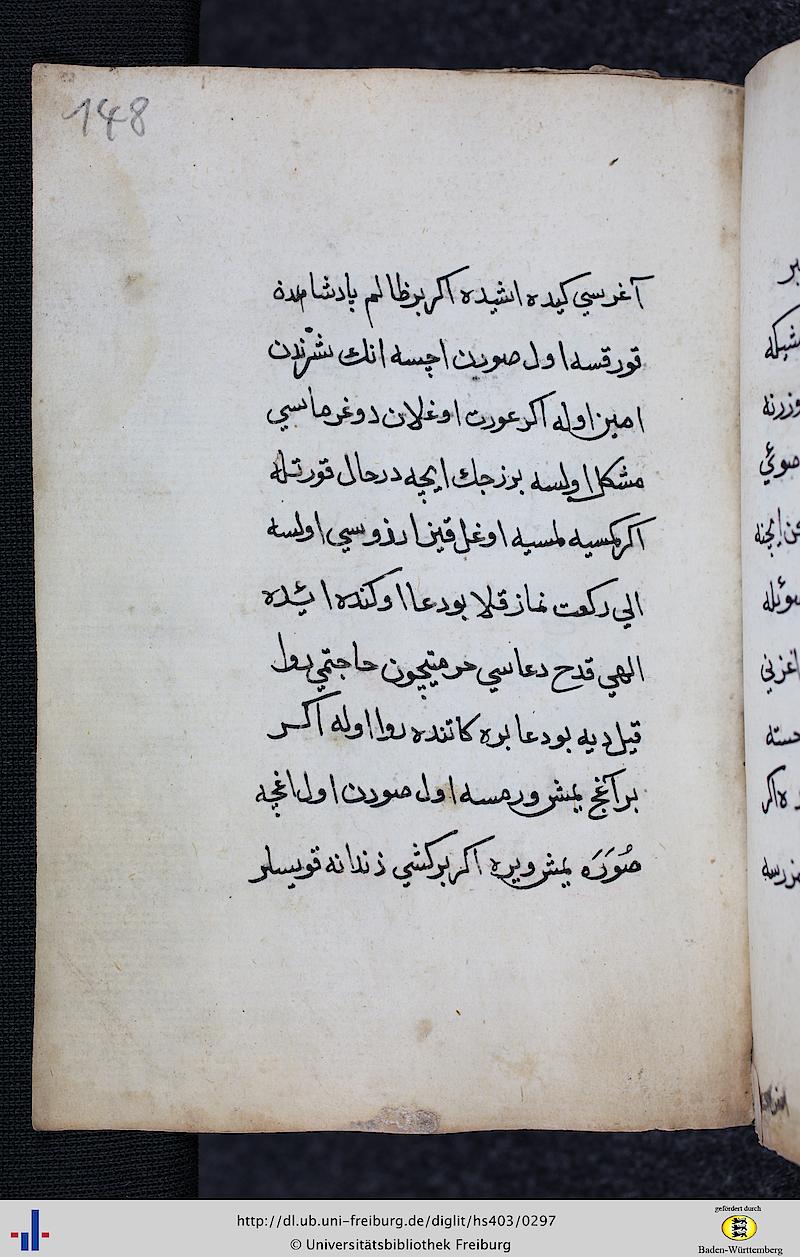 148
آغرسي كيده اشيده اكر بر ظالم پادشاهدن
قورقسه اول صودن اچسه انك شرندن
امين اوله اكر عورت اوغلان دوغرماسي
مشكل اولسه بر زجك ايچه درحال قورتله
اكر كمسيه اوغل قيز ارزوسي اولسه
الي ركعت نماز قلا بو دعا اوكنده ائيده
الهي قدح دعاسي حرمتيچون حاجتمي روا
قيل ديه بو دعا بره كاتنده روا اوله اكر
بر آغچ يمش ورمسه اول صودن اول اغچه
صُورَه يمش ويره اكر بر كشي زندانه قويسلر
http://dl.ub.uni-freiburg.de/diglit/hs403/0297
© Universitätsbibliothek Freiburg
gefördert durch
Baden-Württemberg